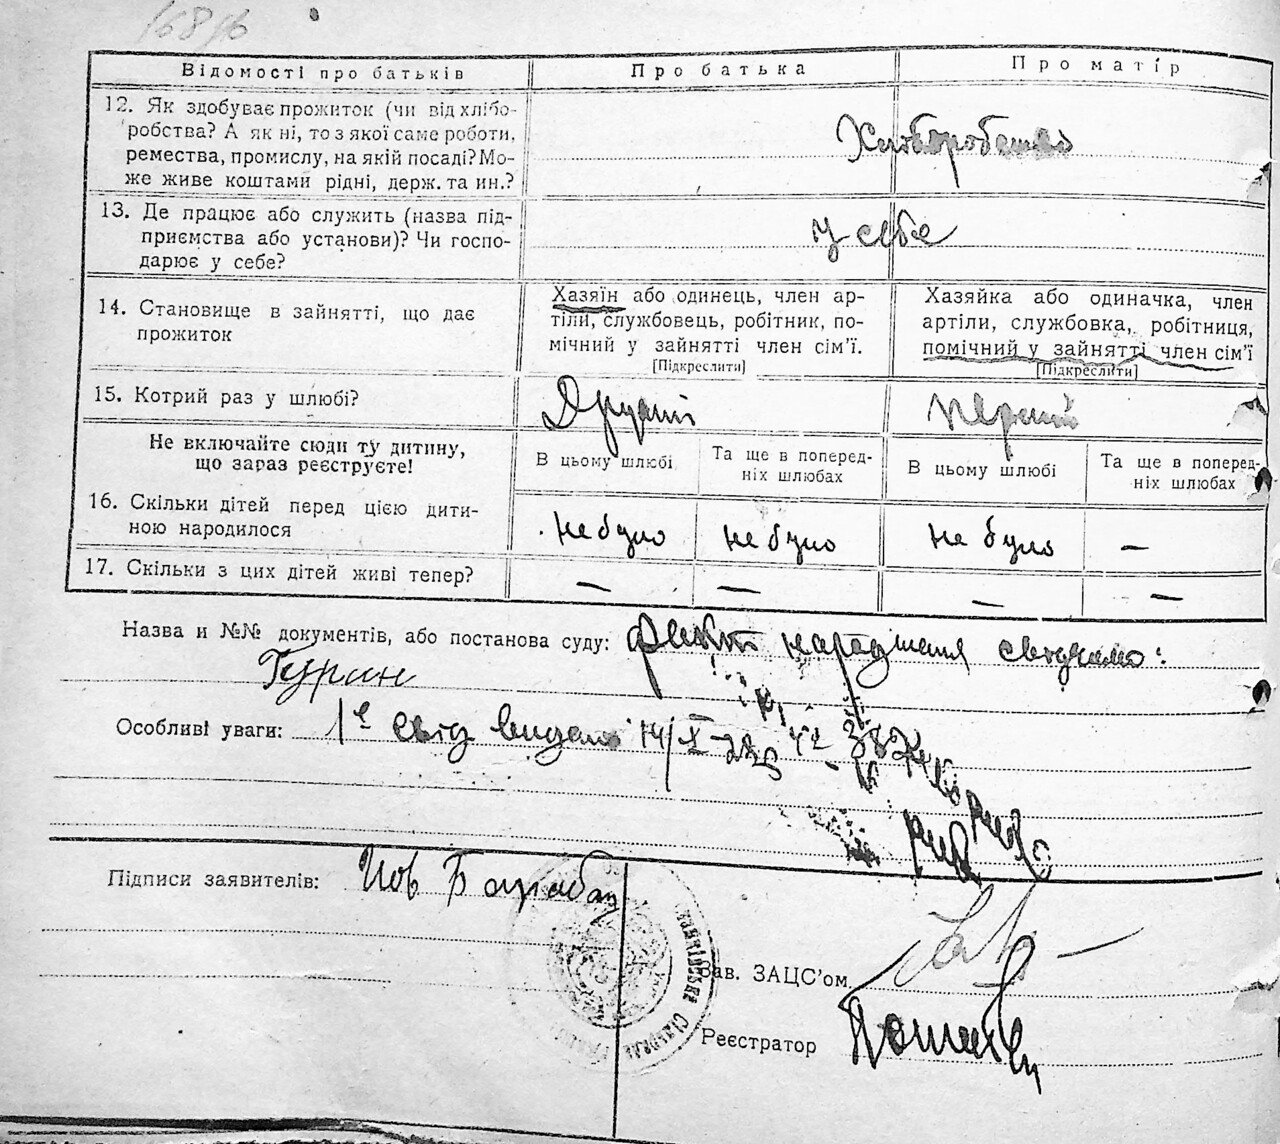 Відомості про батьків
Про батька
Про матір
12. Як здобуває прожиток (чи від хлібо-
робства? А як ні, то з якої саме роботи,
ремества, промислу, на якій посаді? Мо-
же живе коштами рідні, держ. та ин.?
Хліборобство
13. Де працює або служить (назва під-
приємства або установи)? Чи госпо-
дарює у себе?
у себе
14. Становище в зайнятті, що дає
прожиток
Хазяїн або одинець, член ар-
тіли, службовець, робітник, по-
мічний у зайнятті член сім'ї.
[Підкреслити]
Хазяйка або одиначка, член
артіли, службовка, робітниця,
помічний у зайнятті член сім'ї
[Підкреслити]
15. Котрий раз у шлюбі?
Другий
Перший
Не включайте сюди ту дитину,
що зараз реєструєте!
В цьому шлюбі
Та ще в поперед-
ніх шлюбах
В цьому шлюбі
Та ще в поперед-
ніх шлюбах
16. Скільки дітей перед цією дити-
ною народилося
не було
не було
не було
—
17. Скільки з цих дітей живі тепер?
—
—
—
—
Назва и №№ документів, або постанова суду: факт народження свідчимо:
Особливі уваги:
Підписи заявителів: Иов
Зав. ЗАЦС'ом
Реєстратор